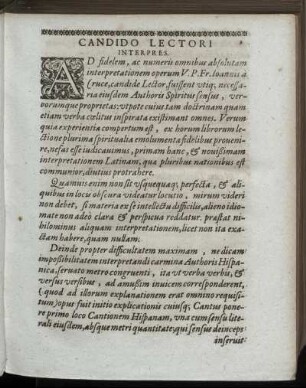 CANDIDO LECTORI
INTERPRES.
AD fidelem, ac numeris omnibus absolutam
interpretationem operum V. P. Fr. Ioannis a
Cruce, candide Lector, fuissent vtiq; necessa-
ria eiusdem Authoris Spiritus sensus, ver-
borumque proprietas: vtpote cuius tam doctrinam quam
etiam verba cœlitus inspirata existimant omnes. Verum
quia experientia compertum est, ex horum librorum le-
ctione plurima spiritualia emolumenta fidelibus proueni-
re, nefas esse iudicauimus, primam hanc, & nouissimam
interpretationem Latinam, qua pluribus nationibus est
communior, diutius protrahere.
Quamuis enim non sit vsquequaq; perfecta, & ali-
quibus in locis obscura videatur locutio, mirum videri
non debet, si materia ex se intellectu difficilis, alieno idio-
mate non adeò clara & perspicua reddatur. præstat ni-
hilominus aliquam interpretationem, licet non ita exa-
ctam habere, quam nullam.
Deinde propter difficultatem maximam, ne dicam
impossibilitatem interpretandi carmina Authoris Hispa-
nica, seruato metro congruenti, ita vt verba verbis, &
versus versibus, ad amussim inuicem corresponderent,
(quod ad illorum explanationem erat omnino requisi-
tum) opus fuit initio explicationis cuiusq; Cantus pone-
re primo loco Cantionem Hispanam, vna cum sensu lite-
rali eiusdem, absque metri quantitate, qui sensus deinceps
inseruit